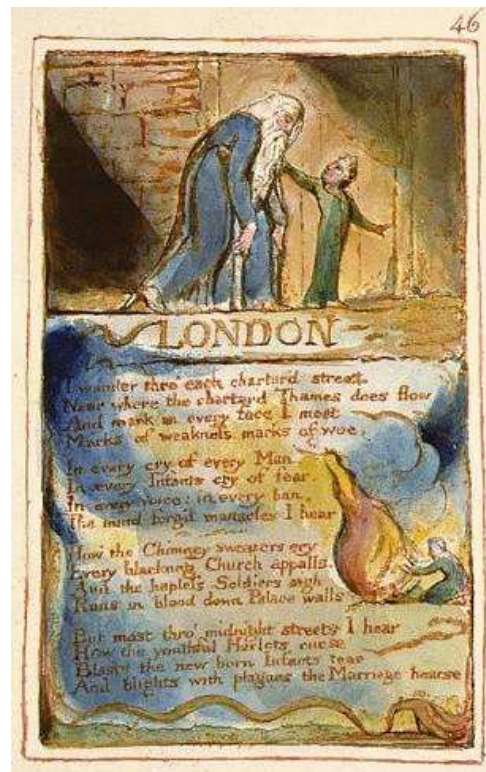 46
LONDON
I wander thro each charterd street.
Near where the charterd Thames does flow
And mark in every face I meet
Marks of weakneſs marks of woe.
In every cry of every Man.
In every Infants cry of fear.
In every voice; in every ban.
The mind forgd manacles I hear
How the Chimney sweepers cry
Every blackning Church appalls.
And the hapleſs Soldiers sigh
Runs in blood down Palace walls
But most thro' midnight streets I hear
How the youthful Harlots curse
Blasts the new born Infants tear
And blights with plagues the Marriage hearse